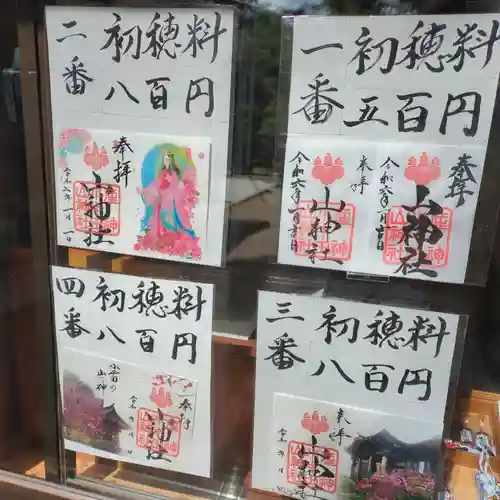 二番
初穂料
八百円
奉拝
山神社
令和六年一月一日
一番
初穂料
五百円
奉拝
山神社
令和六年一月吉日
奉拝
山神社
令和六年一月吉日
四番
初穂料
八百円
奉拝
山神社
三番
初穂料
八百円
奉拝
山神社
令和 年 月 日